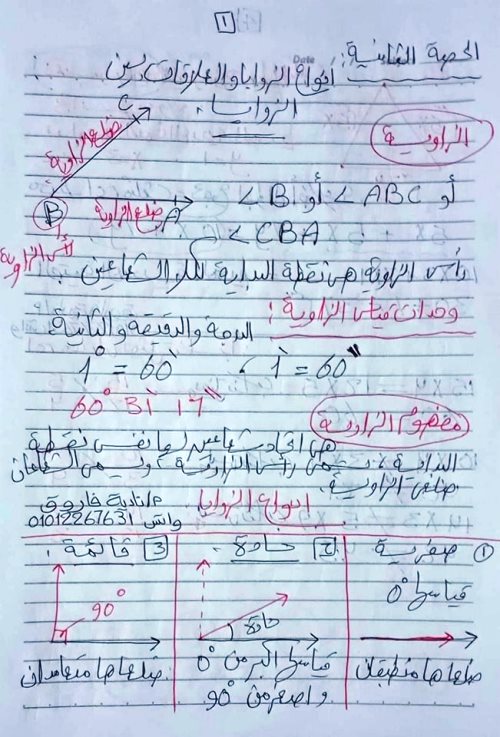 ١
الحصة الثانية: أنواع الزوايا والعلاقات بين
Date
الزوايا.
C
ضلع الزاوية
الزاوية
B
ضلع الزاوية
A
رأس الزاوية
∠B أو ∠ABC أو
∠CBA
رأس الزاوية هي نقطة البداية لكلا الشعاعين
وحدات قياس الزاوية:
الدرجة والدقيقة والثانية.
1° = 60' ، 1' = 60"
60° 31' 17"
مفهوم الزاوية
هي اتحاد شعاعين لهما نفس نقطة
البداية، تسمى رأس الزاوية، ويسمى الشعاعان
ضلعى الزاوية.
أنواع الزوايا
م/نادية فاروق
واتس 01012267631
١ صفرية
قياسها 0°
ضلعاها منطبقان
2 حادة.
حادة
قياسها أكبر من 0°
وأصغر من 90°
3 قائمة.
90°
ضلعاها متعامدان